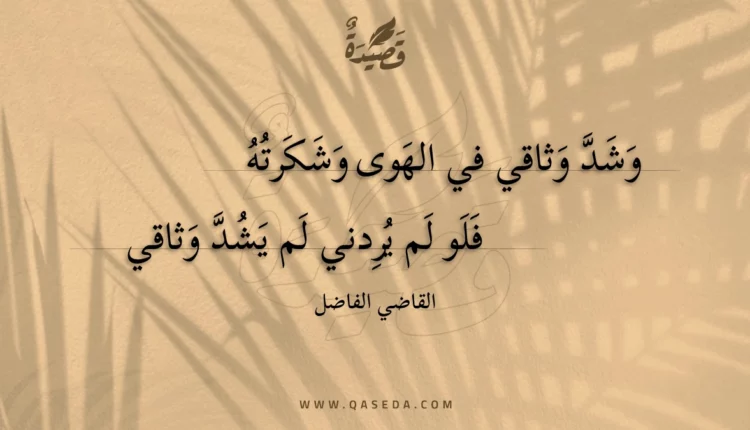 قَصِيدَةٌ
وَشَدَّ وَثاقي في الهَوى وَشَكَرتُهُ
فَلَو لَم يُرِدني لَم يَشُدَّ وَثاقي
القاضي الفاضل
WWW.QASEDA.COM